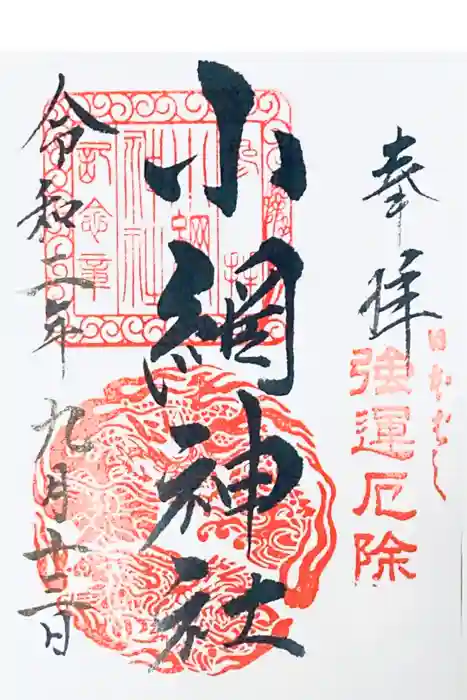 奉拝
日本橋
強運厄除
小網神社
小網神社
記念章
令和二年九月廿二日